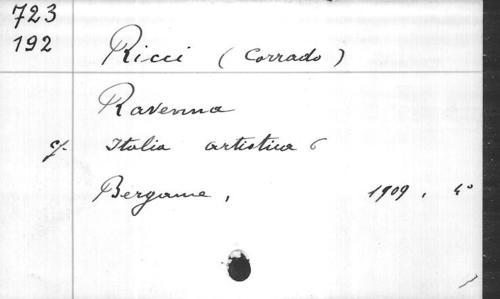 723
192
Ricci (Corrado)
Ravenna
cf. Italia artistica
Bergame, 1909. 4°